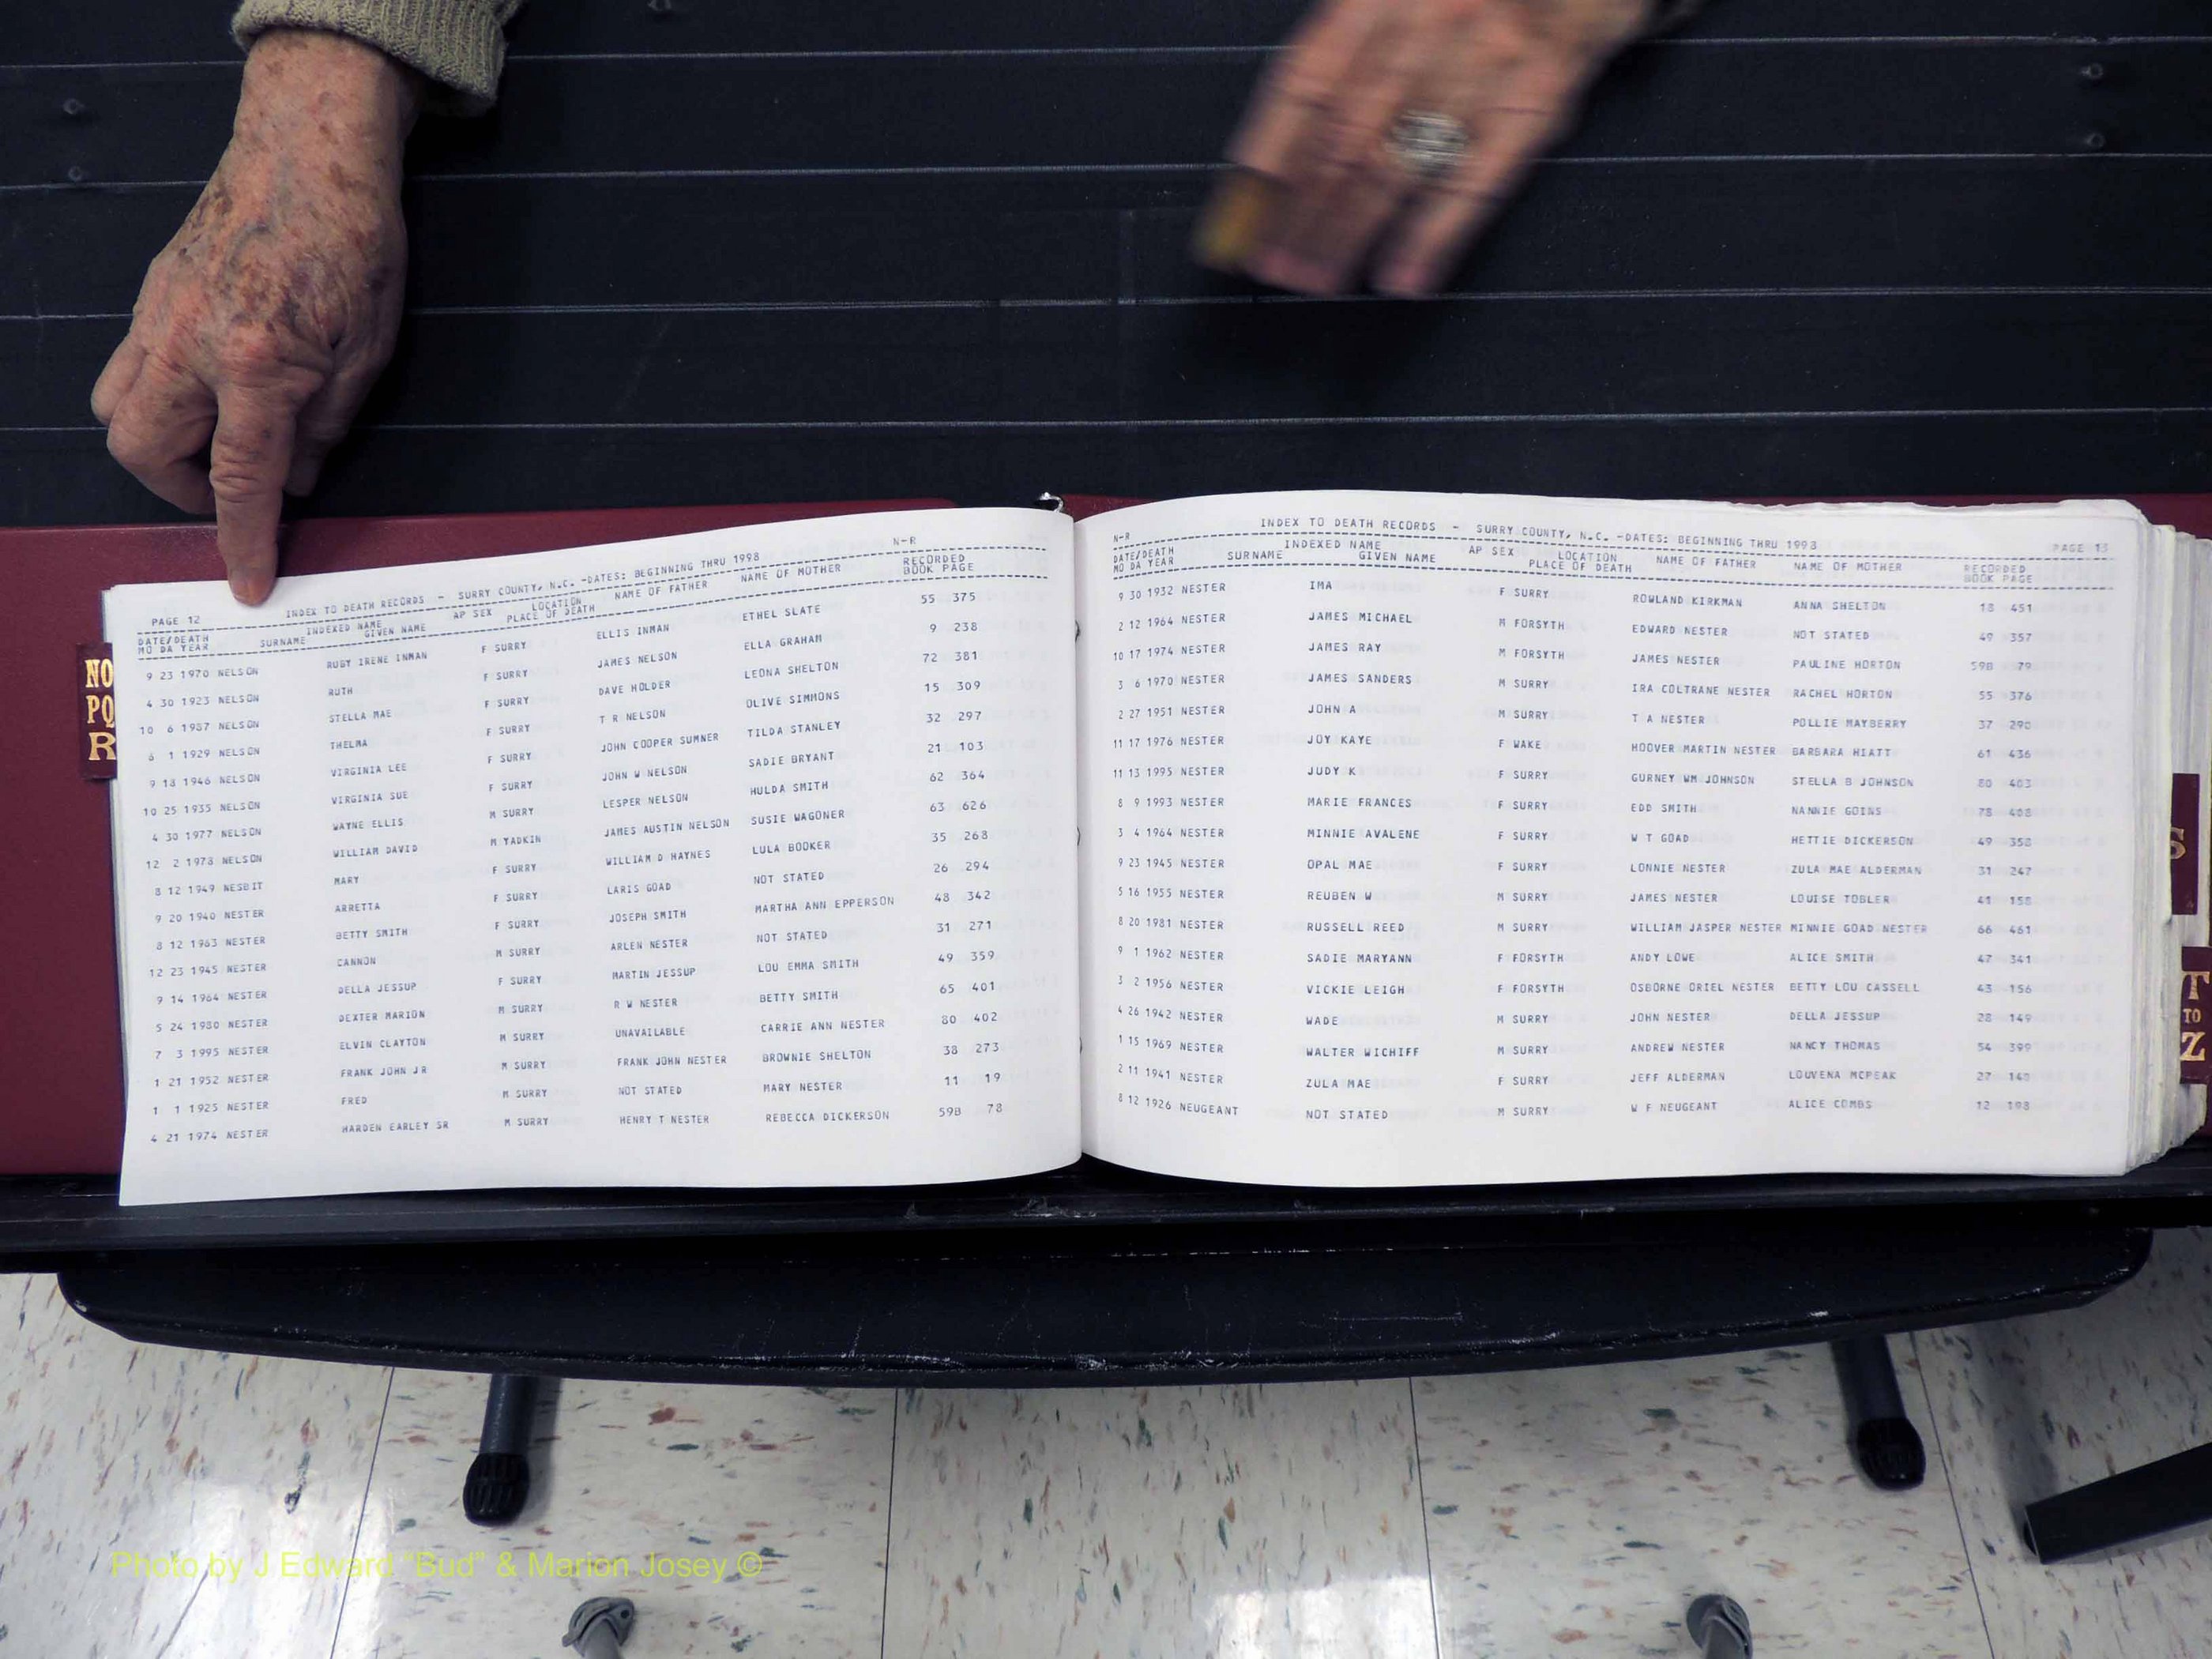 NO
PQ
R
PAGE 12 INDEX TO DEATH RECORDS - SURRY COUNTY, N.C. -DATES: BEGINNING THRU 1998 N-R
DATE/DEATH INDEXED NAME LOCATION RECORDED
MO DA YEAR SURNAME GIVEN NAME AP SEX PLACE OF DEATH NAME OF FATHER NAME OF MOTHER BOOK PAGE
9 23 1970 NELSON RUBY IRENE INMAN F SURRY ELLIS INMAN ETHEL SLATE 55 375
4 30 1923 NELSON RUTH F SURRY JAMES NELSON ELLA GRAHAM 9 238
10 6 1987 NELSON STELLA MAE F SURRY DAVE HOLDER LEONA SHELTON 72 381
6 1 1929 NELSON THELMA F SURRY T R NELSON OLIVE SIMMONS 15 309
9 18 1946 NELSON VIRGINIA LEE F SURRY JOHN COOPER SUMNER TILDA STANLEY 32 297
10 25 1935 NELSON VIRGINIA SUE F SURRY JOHN W NELSON SADIE BRYANT 21 103
4 30 1977 NELSON WAYNE ELLIS M SURRY LESPER NELSON HULDA SMITH 62 364
12 2 1978 NELSON WILLIAM DAVID M YADKIN JAMES AUSTIN NELSON SUSIE WAGONER 63 626
8 12 1949 NESBIT MARY F SURRY WILLIAM D HAYNES LULA BOOKER 35 268
9 20 1940 NESTER ARRETTA F SURRY LARIS GOAD NOT STATED 26 294
8 12 1963 NESTER BETTY SMITH F SURRY JOSEPH SMITH MARTHA ANN EPPERSON 48 342
12 23 1945 NESTER CANNON M SURRY ARLEN NESTER NOT STATED 31 271
9 14 1964 NESTER DELLA JESSUP F SURRY MARTIN JESSUP LOU EMMA SMITH 49 359
5 24 1980 NESTER DEXTER MARION M SURRY R W NESTER BETTY SMITH 65 401
7 3 1995 NESTER ELVIN CLAYTON M SURRY UNAVAILABLE CARRIE ANN NESTER 80 402
1 21 1952 NESTER FRANK JOHN JR M SURRY FRANK JOHN NESTER BROWNIE SHELTON 38 273
1 1 1925 NESTER FRED M SURRY NOT STATED MARY NESTER 11 19
4 21 1974 NESTER HARDEN EARLEY SR M SURRY HENRY T NESTER REBECCA DICKERSON 59B 78
N-R INDEX TO DEATH RECORDS - SURRY COUNTY, N.C. -DATES: BEGINNING THRU 1998 PAGE 13
DATE/DEATH INDEXED NAME LOCATION RECORDED
MO DA YEAR SURNAME GIVEN NAME AP SEX PLACE OF DEATH NAME OF FATHER NAME OF MOTHER BOOK PAGE
9 30 1932 NESTER IMA F SURRY ROWLAND KIRKMAN ANNA SHELTON 18 451
2 12 1964 NESTER JAMES MICHAEL M FORSYTH EDWARD NESTER NOT STATED 49 357
10 17 1974 NESTER JAMES RAY M FORSYTH JAMES NESTER PAULINE HORTON 59B 79
3 6 1970 NESTER JAMES SANDERS M SURRY IRA COLTRANE NESTER RACHEL HORTON 55 376
2 27 1951 NESTER JOHN A M SURRY T A NESTER POLLIE MAYBERRY 37 290
11 17 1976 NESTER JOY KAYE F WAKE HOOVER MARTIN NESTER BARBARA HIATT 61 436
11 13 1995 NESTER JUDY K F SURRY GURNEY WM JOHNSON STELLA B JOHNSON 80 403
8 9 1993 NESTER MARIE FRANCES F SURRY EDD SMITH NANNIE GOINS 78 408
3 4 1964 NESTER MINNIE AVALENE F SURRY W T GOAD HETTIE DICKERSON 49 358
9 23 1945 NESTER OPAL MAE F SURRY LONNIE NESTER ZULA MAE ALDERMAN 31 247
5 16 1955 NESTER REUBEN W M SURRY JAMES NESTER LOUISE TOBLER 41 158
8 20 1981 NESTER RUSSELL REED M SURRY WILLIAM JASPER NESTER MINNIE GOAD NESTER 66 461
9 1 1962 NESTER SADIE MARYANN F FORSYTH ANDY LOWE ALICE SMITH 47 341
3 2 1956 NESTER VICKIE LEIGH F FORSYTH OSBORNE ORIEL NESTER BETTY LOU CASSELL 43 156
4 26 1942 NESTER WADE M SURRY JOHN NESTER DELLA JESSUP 28 149
1 15 1969 NESTER WALTER WICHIFF M SURRY ANDREW NESTER NANCY THOMAS 54 399
2 11 1941 NESTER ZULA MAE F SURRY JEFF ALDERMAN LOUVENA MCPEAK 27 140
8 12 1926 NEUGEANT NOT STATED M SURRY W F NEUGEANT ALICE COMBS 12 198
S
T
TO
Z
Photo by J Edward "Bud" & Marion Josey ©